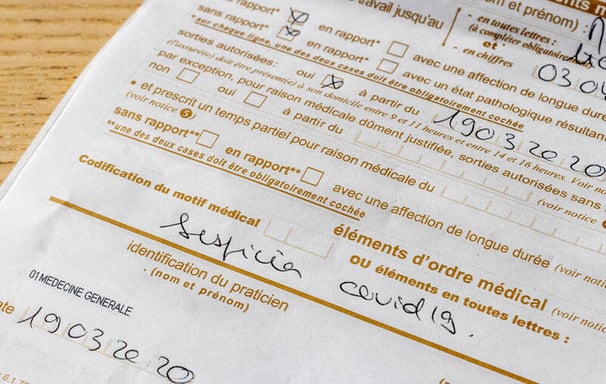 nts m
et prénom) :
travail jusqu'au
- en toutes lettres :
(à compléter obligatoirement
et
- en chiffres
03 04
sans rapport* X en rapport* avec une affection de longue durée
sans rapport* X en rapport* avec un état pathologique résultant
*sur chaque ligne, une des deux cases doit être obligatoirement cochée
sorties autorisées: oui X à partir du 19032020
(l'assuré(e) doit être présent(e) à son domicile entre 9 et 11 heures et entre 14 et 16 heures. Voir no
par exception, pour raison médicale dûment justifiée, sorties autorisées sans
non oui à partir du (voir notice
• et prescrit un temps partiel pour raison médicale du
(voir notice 5)
sans rapport** en rapport** avec une affection de longue durée (voir notice
**une des deux cases doit être obligatoirement cochée
éléments d'ordre médical (voir notice
Codification du motif médical ou éléments en toutes lettres :
covid19.
identification du praticien
(nom et prénom)
01 MEDECINE GENERALE
ate 19032020